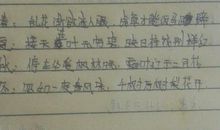 春：乱花渐欲迷人眼，浅草才能没马蹄
夏：接天莲叶无穷碧，映日荷花别样红
秋：停车坐爱枫林晚，霜叶红于二月花
冬：忽如一夜春风来，千树万树梨花开